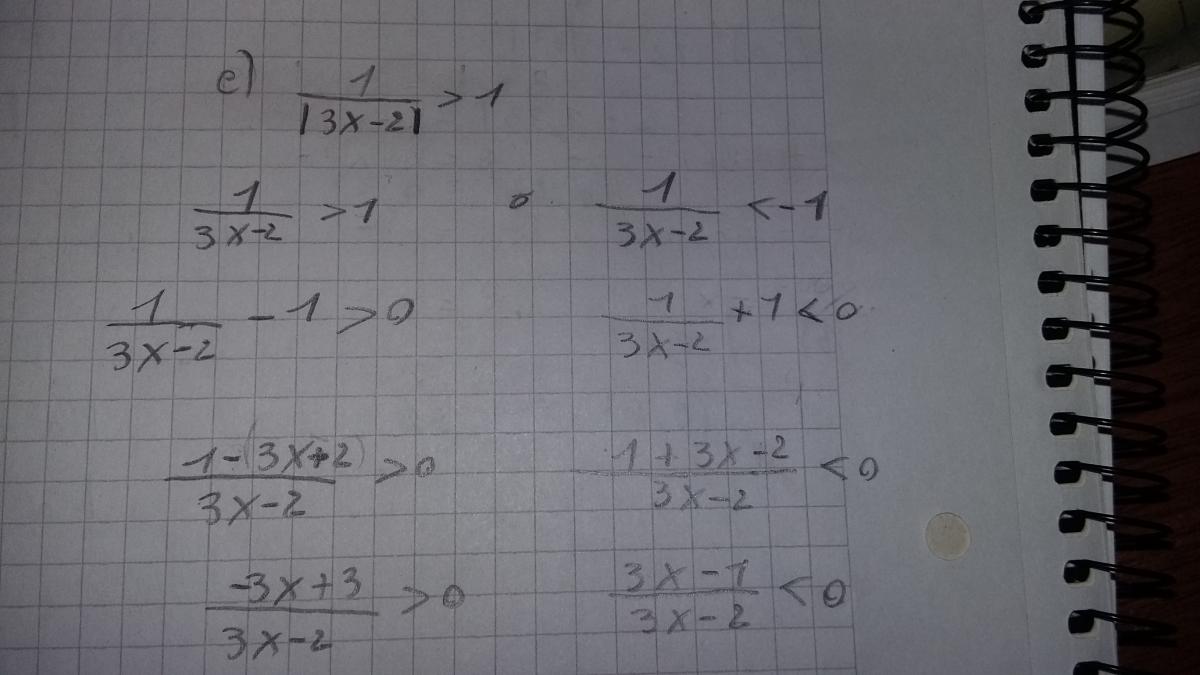 e) 1/|3x-2| > 1
1/(3x-2) > 1 o 1/(3x-2) < -1
1/(3x-2) - 1 > 0 1/(3x-2) + 1 < 0
(1-(3x+2))/(3x-2) > 0 (1+3x-2)/(3x-2) < 0
(-3x+3)/(3x-2) > 0 (3x-1)/(3x-2) < 0